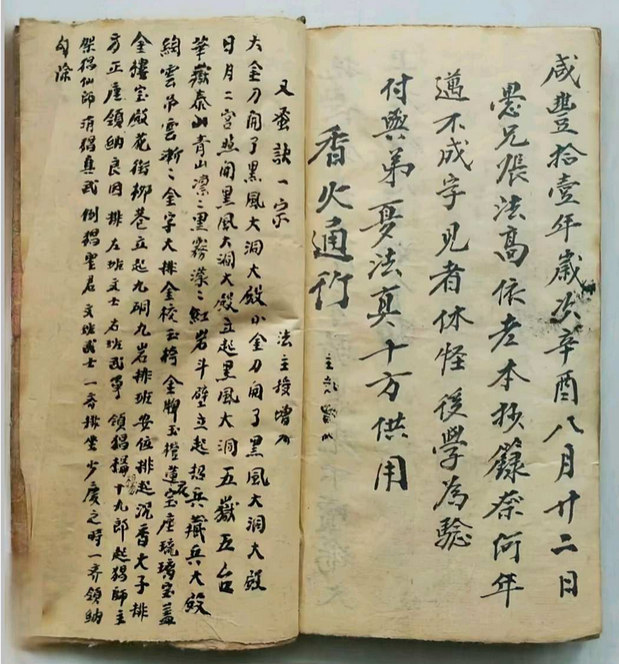 咸豐拾壹年歲次辛酉八月廿二日
愚兄張法高依老本抄錄奈何年
邁不成字見者休怪後學為驗
付與弟夏法真十方供用
香火通行
又蚕訣一宗 法主授增
大金刀開了黑風大洞大殿小金刀開了黑風大洞大殿
日月二宮照開黑風大洞大殿立起黑風大洞五嶽五台
華嶽泰山青山凛〻黑霧濛〻紅岩斗壁立起招兵藏兵大殿
絢雲吊雲漸〻金字大排金校玉椅金牌玉櫈蓮花宝座琉璃宝蓋
金樓宝殿花街柳巷立起九硐九岩排班安位排起沉香火子排
方正座領納良因排左班文士右班武軍領猖十九郎起猖師主
猖仙師消猖真武倒猖聖君文班武士一齊排坐少慶之時一齊領納
勾除